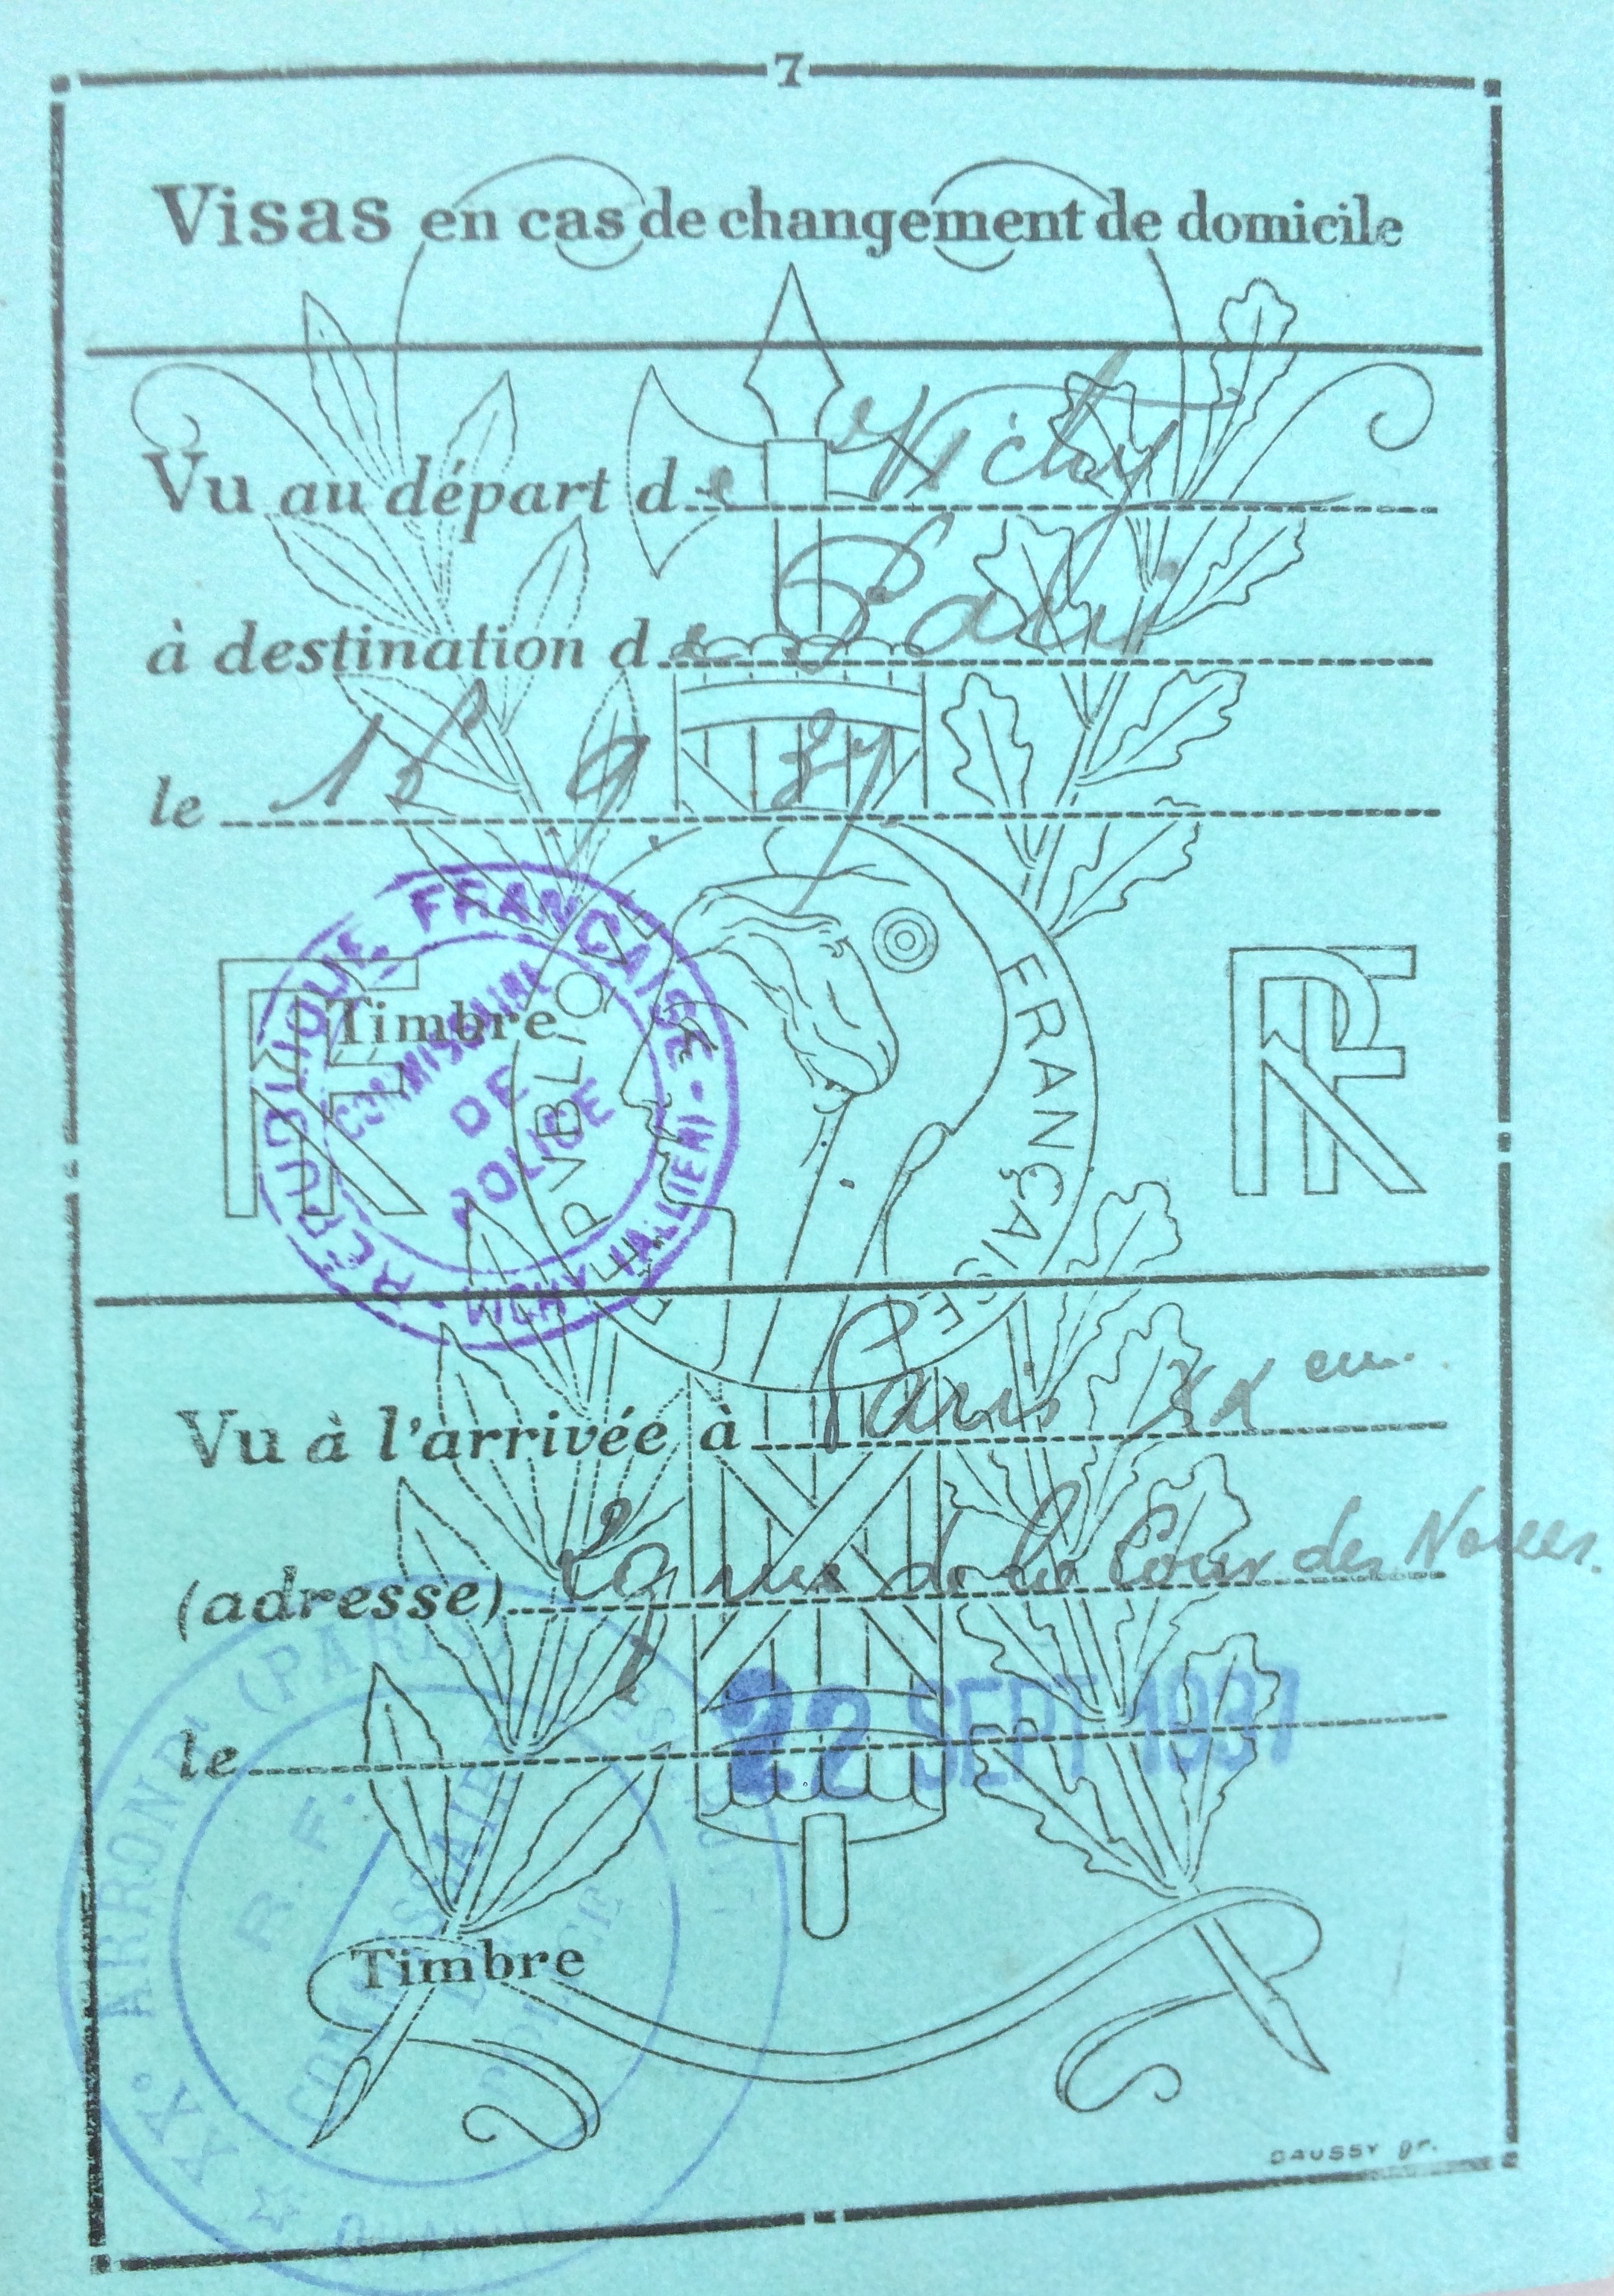 7
Visas en cas de changement de domicile
Vu au départ de Vichy
à destination de Paris
le 9 37
RÉPUBLIQUE FRANÇAISE
COMMISSARIAT
DE
POLICE
VICHY (ALLIER)
Timbre
RF
RÉPVBLIQVE FRANÇAISE
RF
Vu à l'arrivée à Paris XX em.
(adresse) rue de la Cour des Noues.
le 22 SEPT 1937
XXº ARRONDt (PARIS)
R. F.
COMMISSAIRE
DE
POLICE
Timbre
DAUSSY gr.